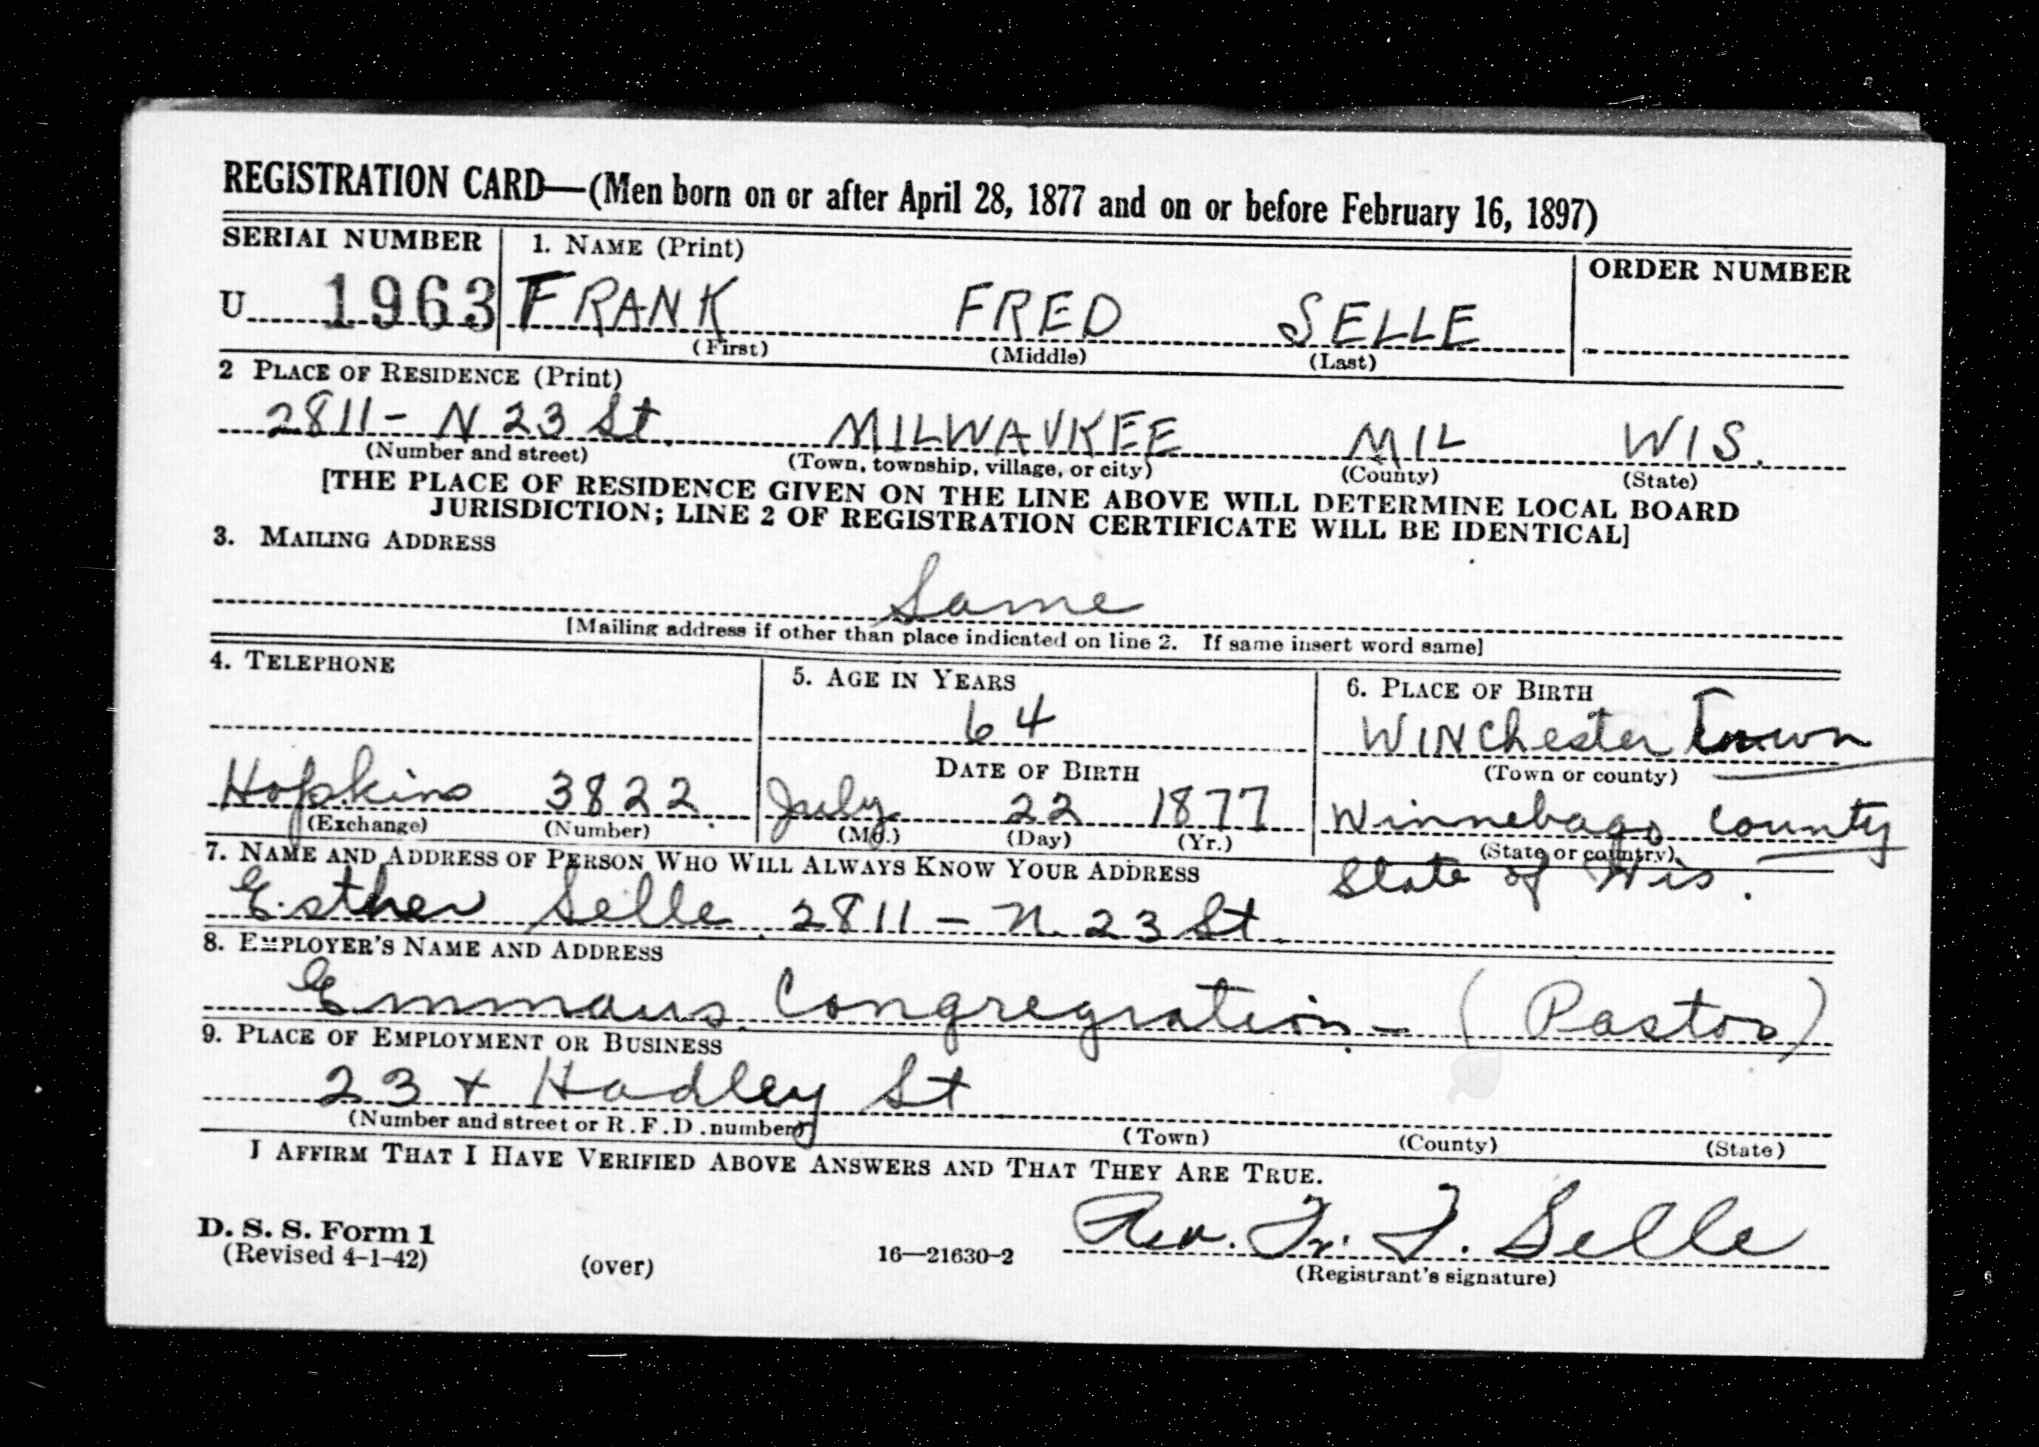 REGISTRATION CARD—(Men born on or after April 28, 1877 and on or before February 16, 1897)
SERIAL NUMBER 1. NAME (Print) ORDER NUMBER
U 1963 FRANK FRED SELLE
(First) (Middle) (Last)
2 PLACE OF RESIDENCE (Print)
2811 - N 23 St. MILWAUKEE MIL WIS.
(Number and street) (Town, township, village, or city) (County) (State)
[THE PLACE OF RESIDENCE GIVEN ON THE LINE ABOVE WILL DETERMINE LOCAL BOARD
JURISDICTION; LINE 2 OF REGISTRATION CERTIFICATE WILL BE IDENTICAL]
3. MAILING ADDRESS
Same
[Mailing address if other than place indicated on line 2. If same insert word same]
4. TELEPHONE 5. AGE IN YEARS 6. PLACE OF BIRTH
64 WINchester Town
DATE OF BIRTH (Town or county)
Hopkins 3822. July 22 1877 Winnebago County
(Exchange) (Number) (Mo.) (Day) (Yr.) (State or country)
7. NAME AND ADDRESS OF PERSON WHO WILL ALWAYS KNOW YOUR ADDRESS State of Wis.
Esther Selle. 2811 - N. 23 St.
8. EMPLOYER'S NAME AND ADDRESS
Emmaus Congregration. - (Pastor)
9. PLACE OF EMPLOYMENT OR BUSINESS
23 + Hadley St
(Number and street or R.F.D. number) (Town) (County) (State)
I AFFIRM THAT I HAVE VERIFIED ABOVE ANSWERS AND THAT THEY ARE TRUE.
D. S. S. Form 1
(Revised 4-1-42) (over) 16—21630-2 Rev. Fr. F. Selle
(Registrant's signature)